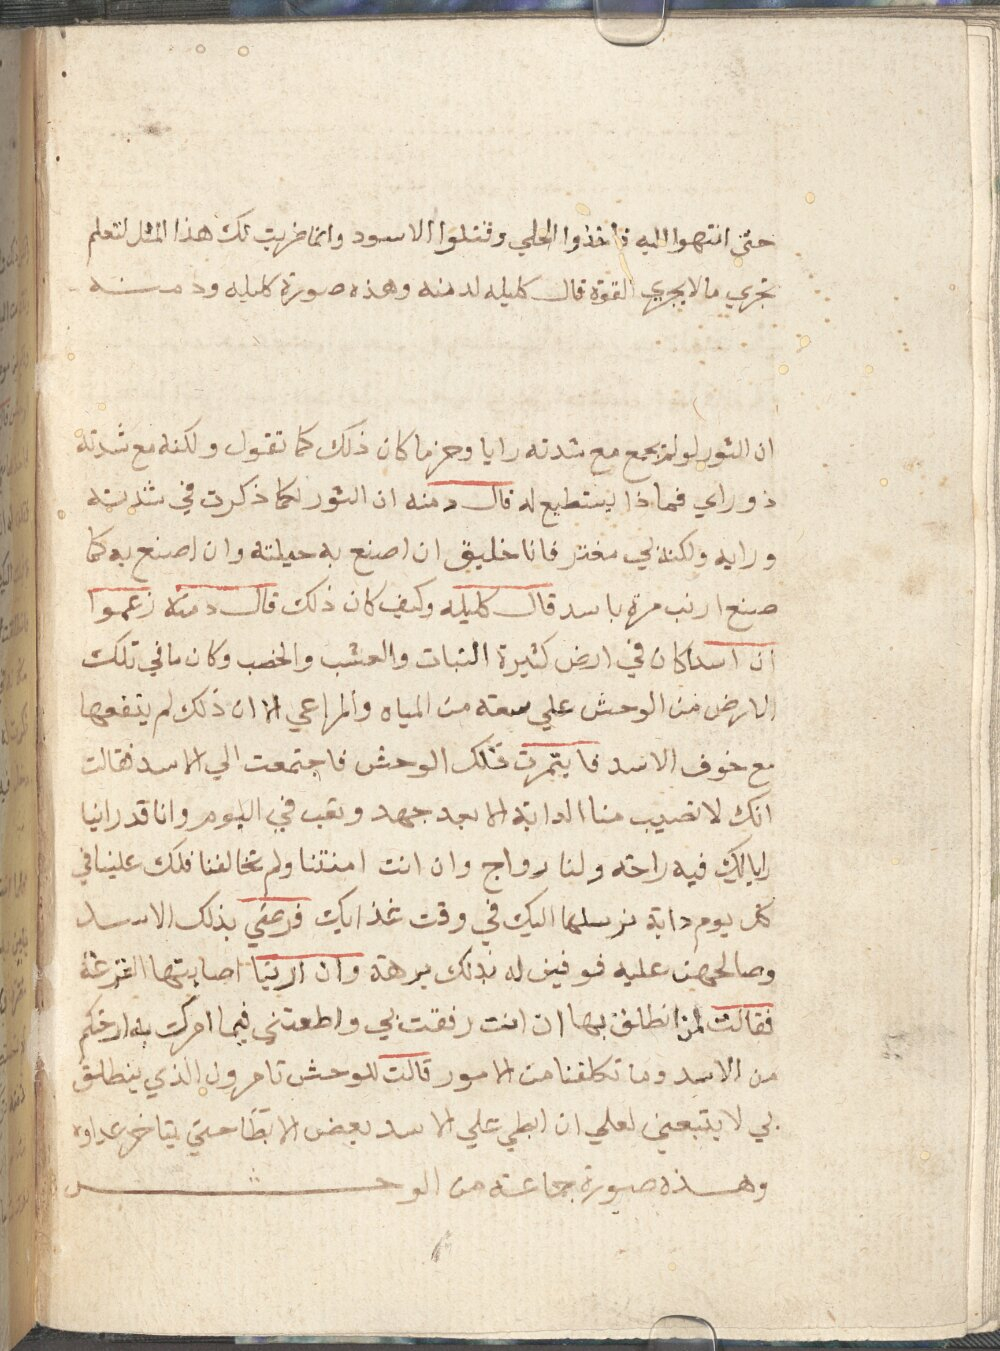 حتى انتهوا اليه فاخذوا الحلي وقتلوا الاسود وانما ضربت لك هذا المثل لتعلم
تجزي ما لا يجزي القوة قال كليله لدمنه وهذه صورة كليله ودمنه
ان الثور لو لم يجمع مع شدته رايا وحزما كان ذلك كما تقول ولكنه مع شدته
ذو راي فماذا يستطيع له قال دمنه ان الثور لكما ذكرت في شدته
ورايه ولكنه بي مغتر فانا خليق ان اصنع به حيلته وان اصنع به كما
صنع ارنب مرة باسد قال كليله وكيف كان ذلك قال دمنه زعموا
ان اسدا كان في ارض كثيرة النبات والعشب والخصب وكان ما في تلك
الارض من الوحش علي سعته من المياه والمراعي الا ان ذلك لم ينفعها
مع خوف الاسد فايتمرت تلك الوحش فاجتمعت الي الاسد فقالت
انك لا تصيب منا الدابة الا بعد جهد وتعب في اليوم وانا قد راينا
رايا لك فيه راحة ولنا رواج وان انت امنتنا ولم تخالفنا فلك علينا في
كل يوم دابة نرسلها اليك في وقت غذايك فرضي بذلك الاسد
وصالحهن عليه فوفين له بذلك برهة وان ارنبا اصابتها القرعة
فقالت لمن انطلق بها ان انت رفقت بي واطعتني فيما امركت به ارحتكم
من الاسد وما تكلفنا من الامور قالت للوحش تامرون الذي ينطلق
بي لا يتبعني لعلي ان ابطي علي الاسد بعض الابطا حتي يتاخر غداوه
وهذه صورة جماعة من الوحش